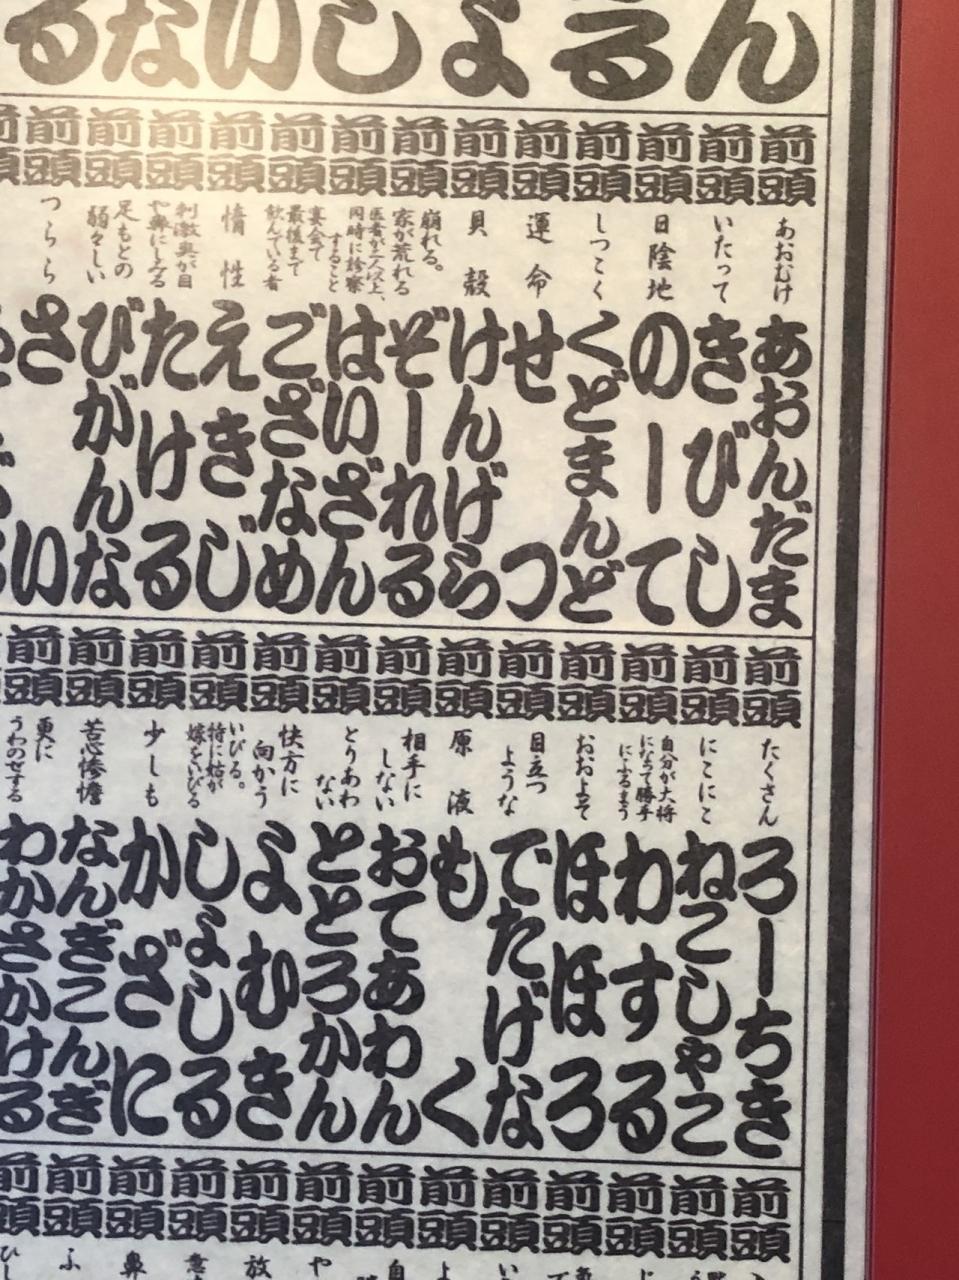 ん
る
よ
し
い
な
る
前頭 あおむけ あおんだま
前頭 いたって きびし
前頭 日陰地 のーて
前頭 しつこく くどまんど
前頭 運命 せつ
前頭 貝殻 けんげら
前頭 崩れる。家が荒れる ぞーれる
前頭 医者が二人以上、同時に診察すること はいざん
前頭 宴会で最後まで飲んでいる者 ござなめ
前頭 惰性 えきじ
前頭 刺激臭が目や鼻にしみる たける
前頭 足もとの弱々しい びがんな
前頭 つらら さい
前頭 たくさん ろーちき
前頭 にこにこ ねこしゃこ
前頭 自分が大将になって勝手にふるまう わする
前頭 おおよそで ほほろ
前頭 目立つような でたげな
前頭 原液 もく
前頭 相手にしない おてあわん
前頭 とりあわない ととろかん
前頭 快方に向かう よむき
前頭 いびる。特に姑が嫁をいびる しょしる
前頭 少しも かざに
前頭 苦心惨憺 なんぎこんぎ
前頭 更にうわのせする わかさかける
前頭
前頭
前頭
前頭
前頭 や
前頭 放
前頭
前頭 鼻
前頭 ふ